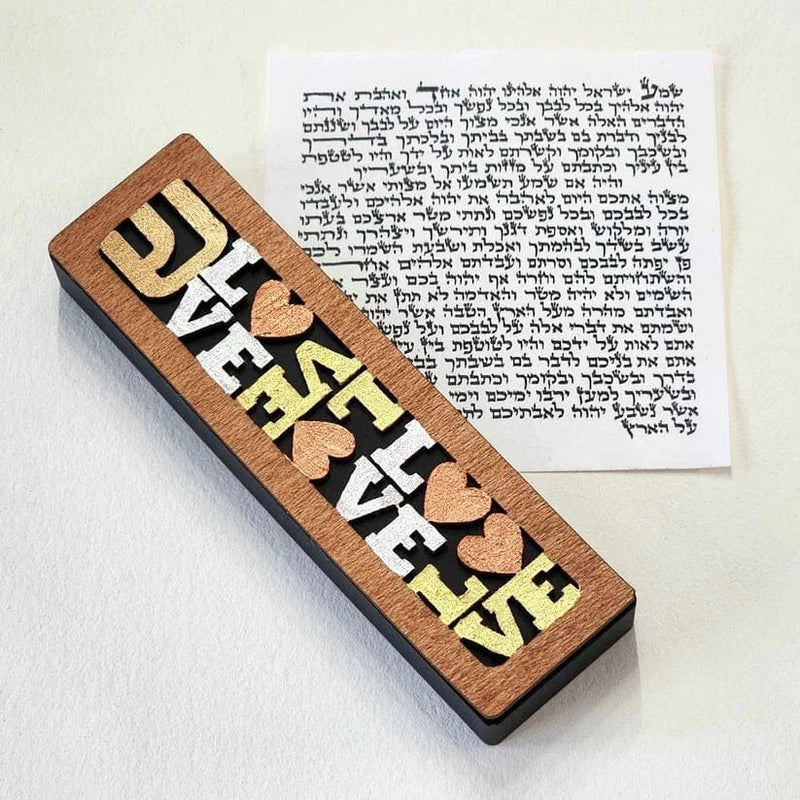 ש
L VE
L VE
L VE
L VE
שמע ישראל יהוה אלהינו יהוה אחד ואהבת את
יהוה אלהיך בכל לבבך ובכל נפשך ובכל מאדך והיו
הדברים האלה אשר אנכי מצוך היום על לבבך ושננתם
לבניך ודברת בם בשבתך בביתך ובלכתך בדרך
ובשכבך ובקומך וקשרתם לאות על ידך והיו לטטפת
בין עיניך וכתבתם על מזזות ביתך ובשעריך
והיה אם שמע תשמעו אל מצותי אשר אנכי
מצוה אתכם היום לאהבה את יהוה אלהיכם ולעבדו
בכל לבבכם ובכל נפשכם ונתתי מטר ארצכם בעתו
יורה ומלקוש ואספת דגנך ותירשך ויצהרך ונתתי
עשב בשדך לבהמתך ואכלת ושבעת השמרו לכם
פן יפתה לבבכם וסרתם ועבדתם אלהים
והשתחויתם להם וחרה אף יהוה בכם
השמים ולא יהיה מטר והאדמה לא תתן את
ואבדתם מהרה מעל הארץ הטבה אשר
ושמתם את דברי אלה על לבבכם ועל
אתם לאות על ידכם והיו לטוטפת בין
אתם את בניכם לדבר בם בשבתך
בדרך ובשכבך ובקומך וכתבתם
ובשעריך למען ירבו ימיכם וימי
אשר נשבע יהוה לאבתיכם
על הארץ